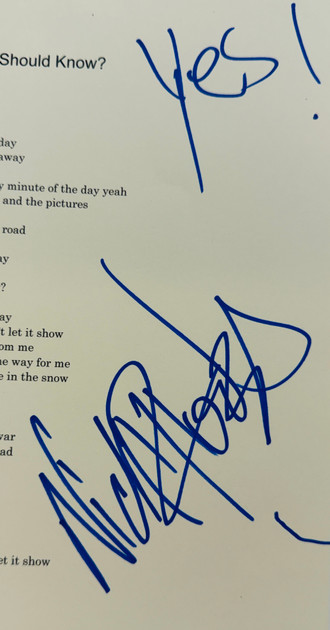 Should Know?
Yes!
day
away
y minute of the day yeah
and the pictures
road
ay
?
ay
t let it show
om me
he way for me
e in the snow
war
ad
et it show